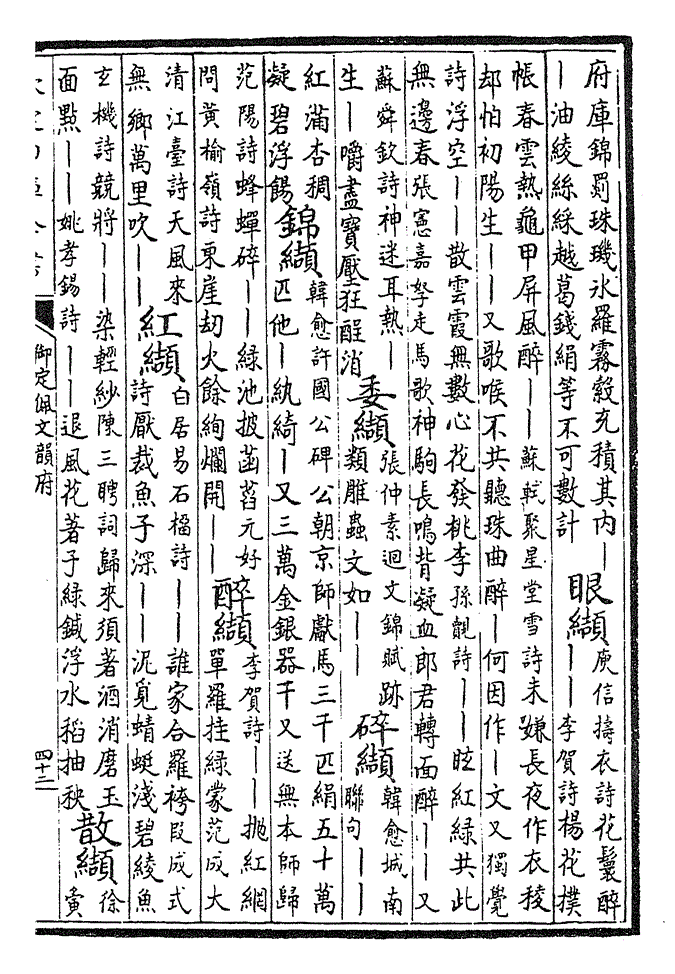 府庫錦罽珠璣氷羅霧縠充積其内｜
｜油綾絲綵越葛錢絹等不可數計
眼纈
庾信擣衣詩花鬟醉
｜｜李賀詩楊花撲
帳春雲熱龜甲屏風醉｜｜蘇軾聚星堂雪詩未嫌長夜作衣稜
却怕初陽生｜｜又歌喉不共聽珠曲醉｜｜何因作｜文又獨覺
詩浮空｜｜散雲霞無數心花發桃李孫覿詩｜｜眩紅緑共此
無邊春張憲嘉孥走馬歌神駒長鳴背凝血郎君轉面醉｜｜又
蘇舜欽詩神迷耳熱｜
生｜嚼盡寶壓狂酲消
委纈
張仲素迴文錦賦跡
類雕蟲文如｜｜
碎纈
韓愈城南
聯句｜｜
紅滿杏稠
凝碧浮餳
錦纈
韓愈許國公碑公朝京師獻馬三千匹絹五十萬
匹他｜紈綺｜又三萬金銀器千又送無本師歸
范陽詩蜂蟬碎｜｜緑池披菡萏元好
問黄榆嶺詩東崖劫火餘絢爛開｜｜
醉纈
李賀詩｜｜抛紅網
單羅挂緑蒙范成大
清江臺詩天風來
無鄉萬里吹｜｜
紅纈
白居易石榴詩｜｜誰家合羅袴段成式
詩厭裁魚子深｜｜泥覓蜻蜓淺碧綾魚
玄機詩競將｜｜染輕紗陳三聘詞歸來須著酒消磨玉
面點｜｜姚孝錫詩｜｜退風花著子緑鍼浮水稻抽秧
散纈
徐
寅
御定佩文韻府
四十二